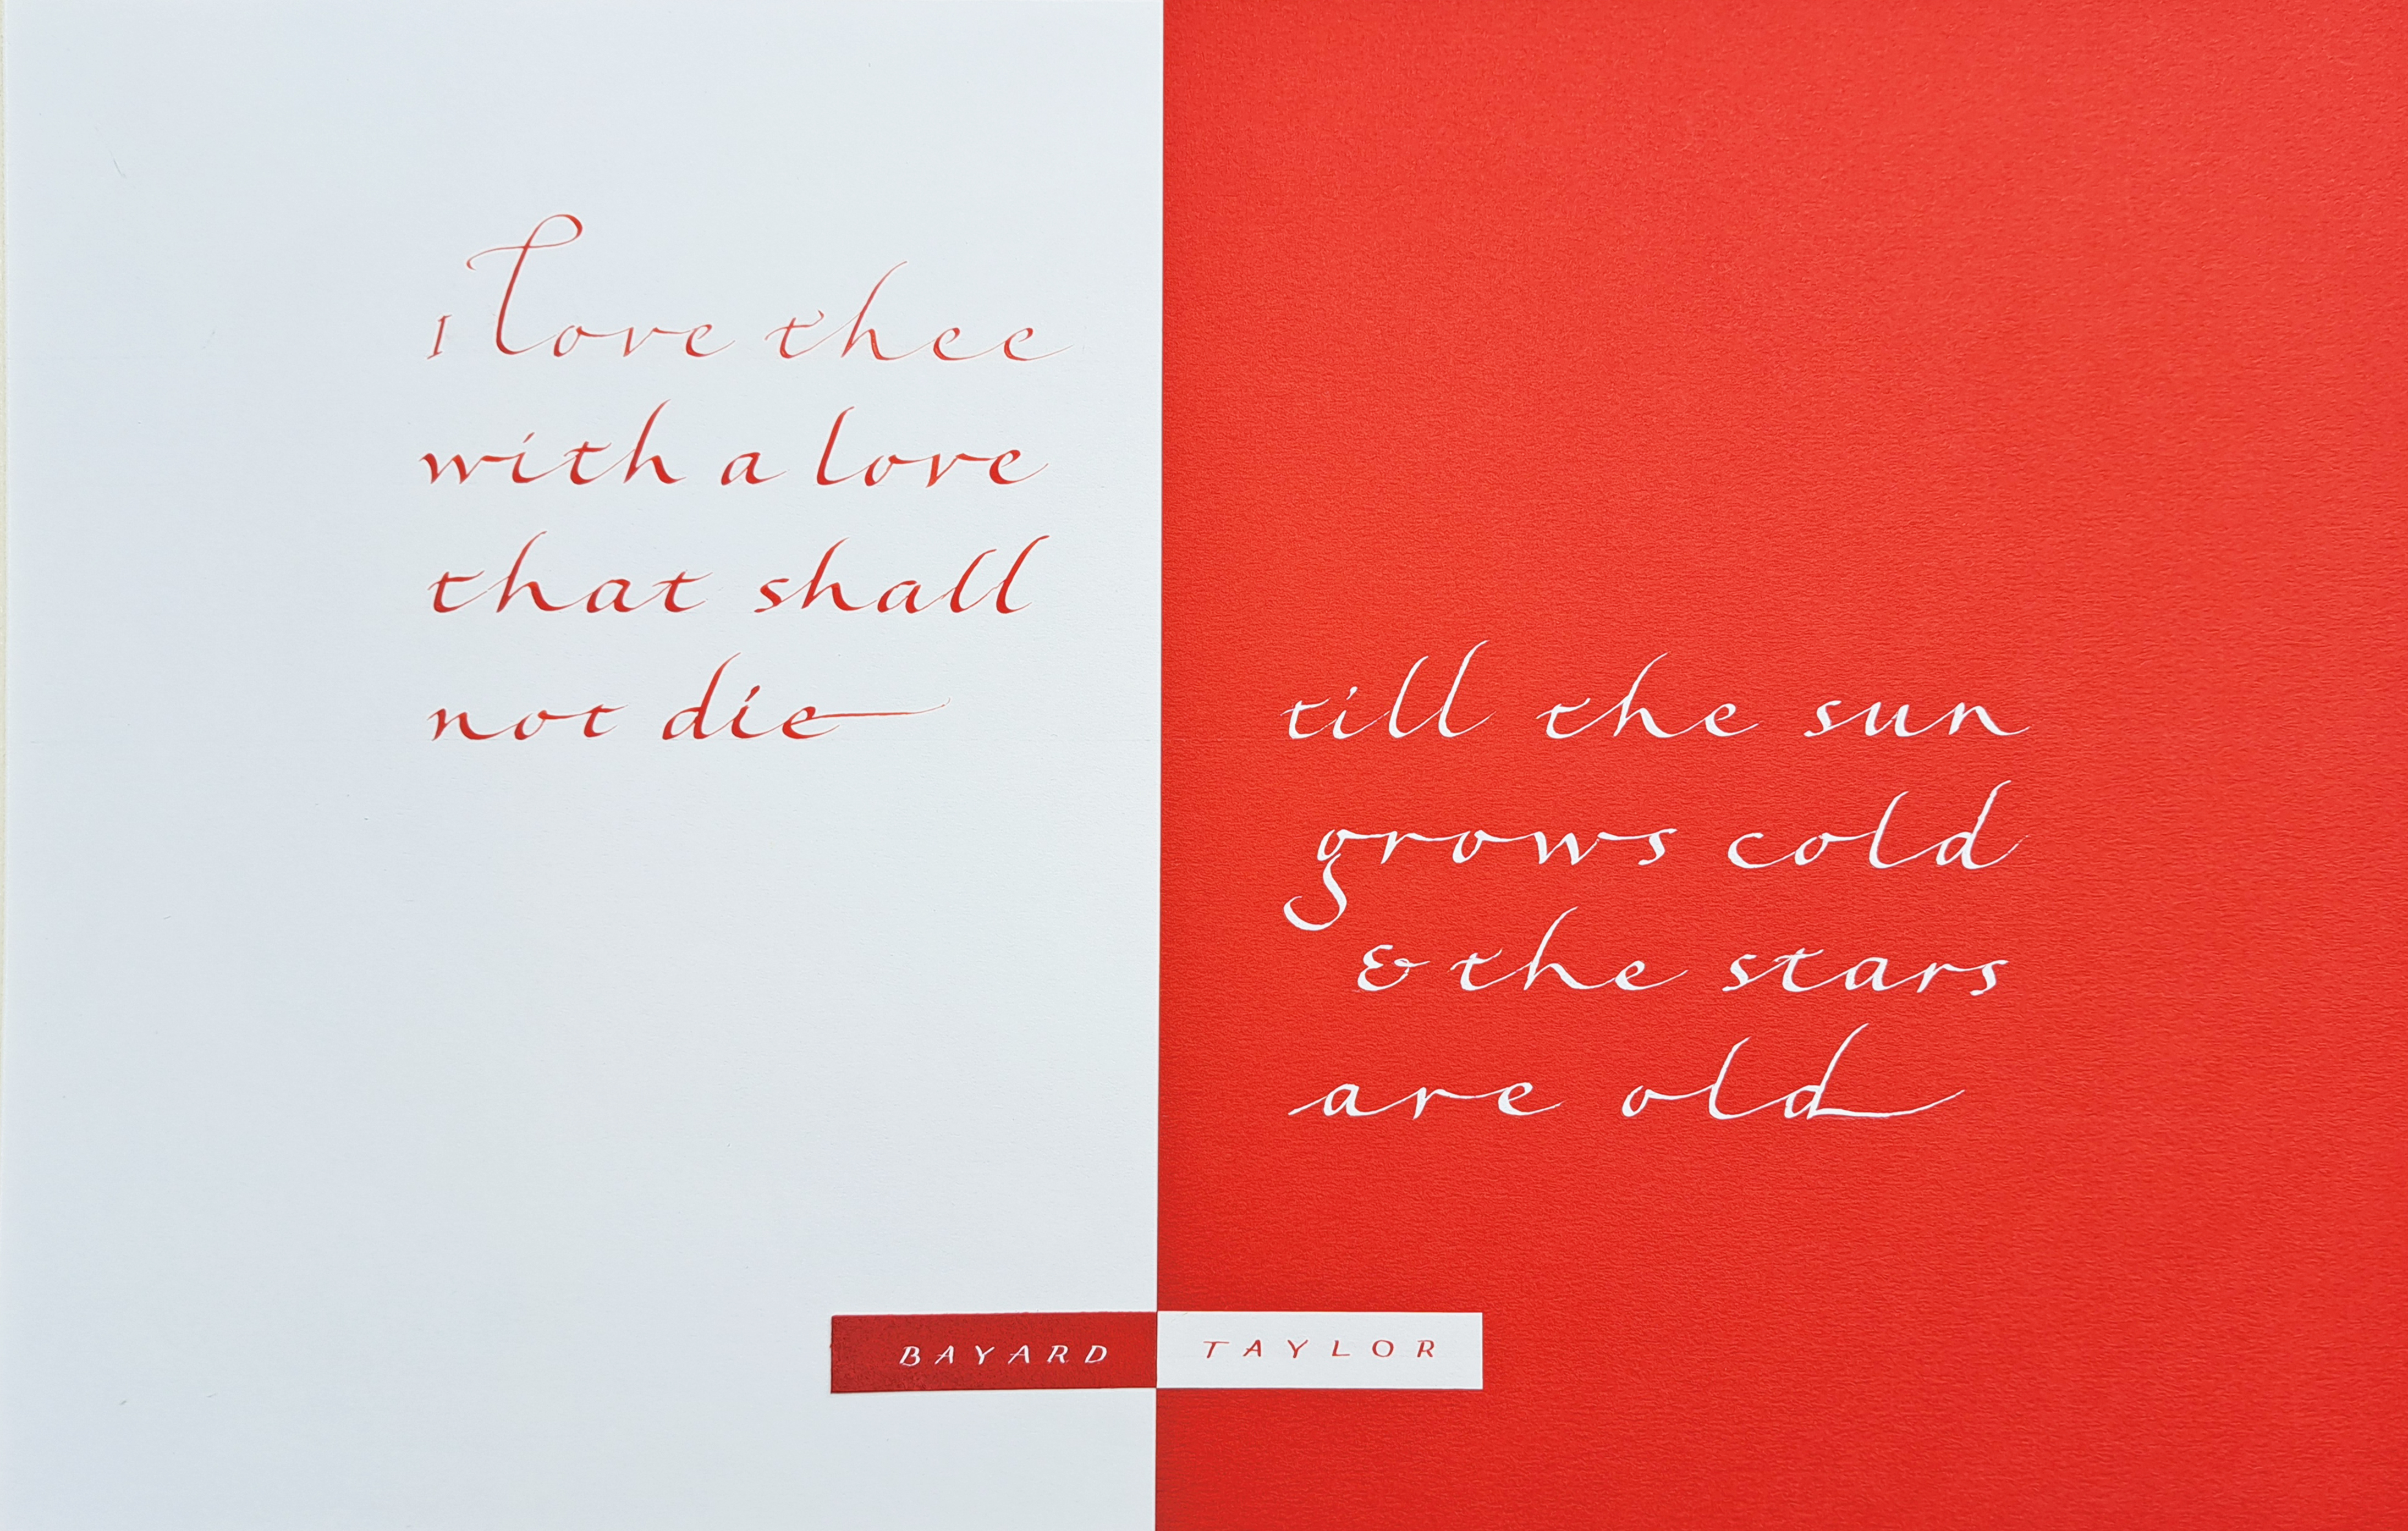 I love thee
with a love
that shall
not die
till the sun
grows cold
& the stars
are old
BAYARD TAYLOR